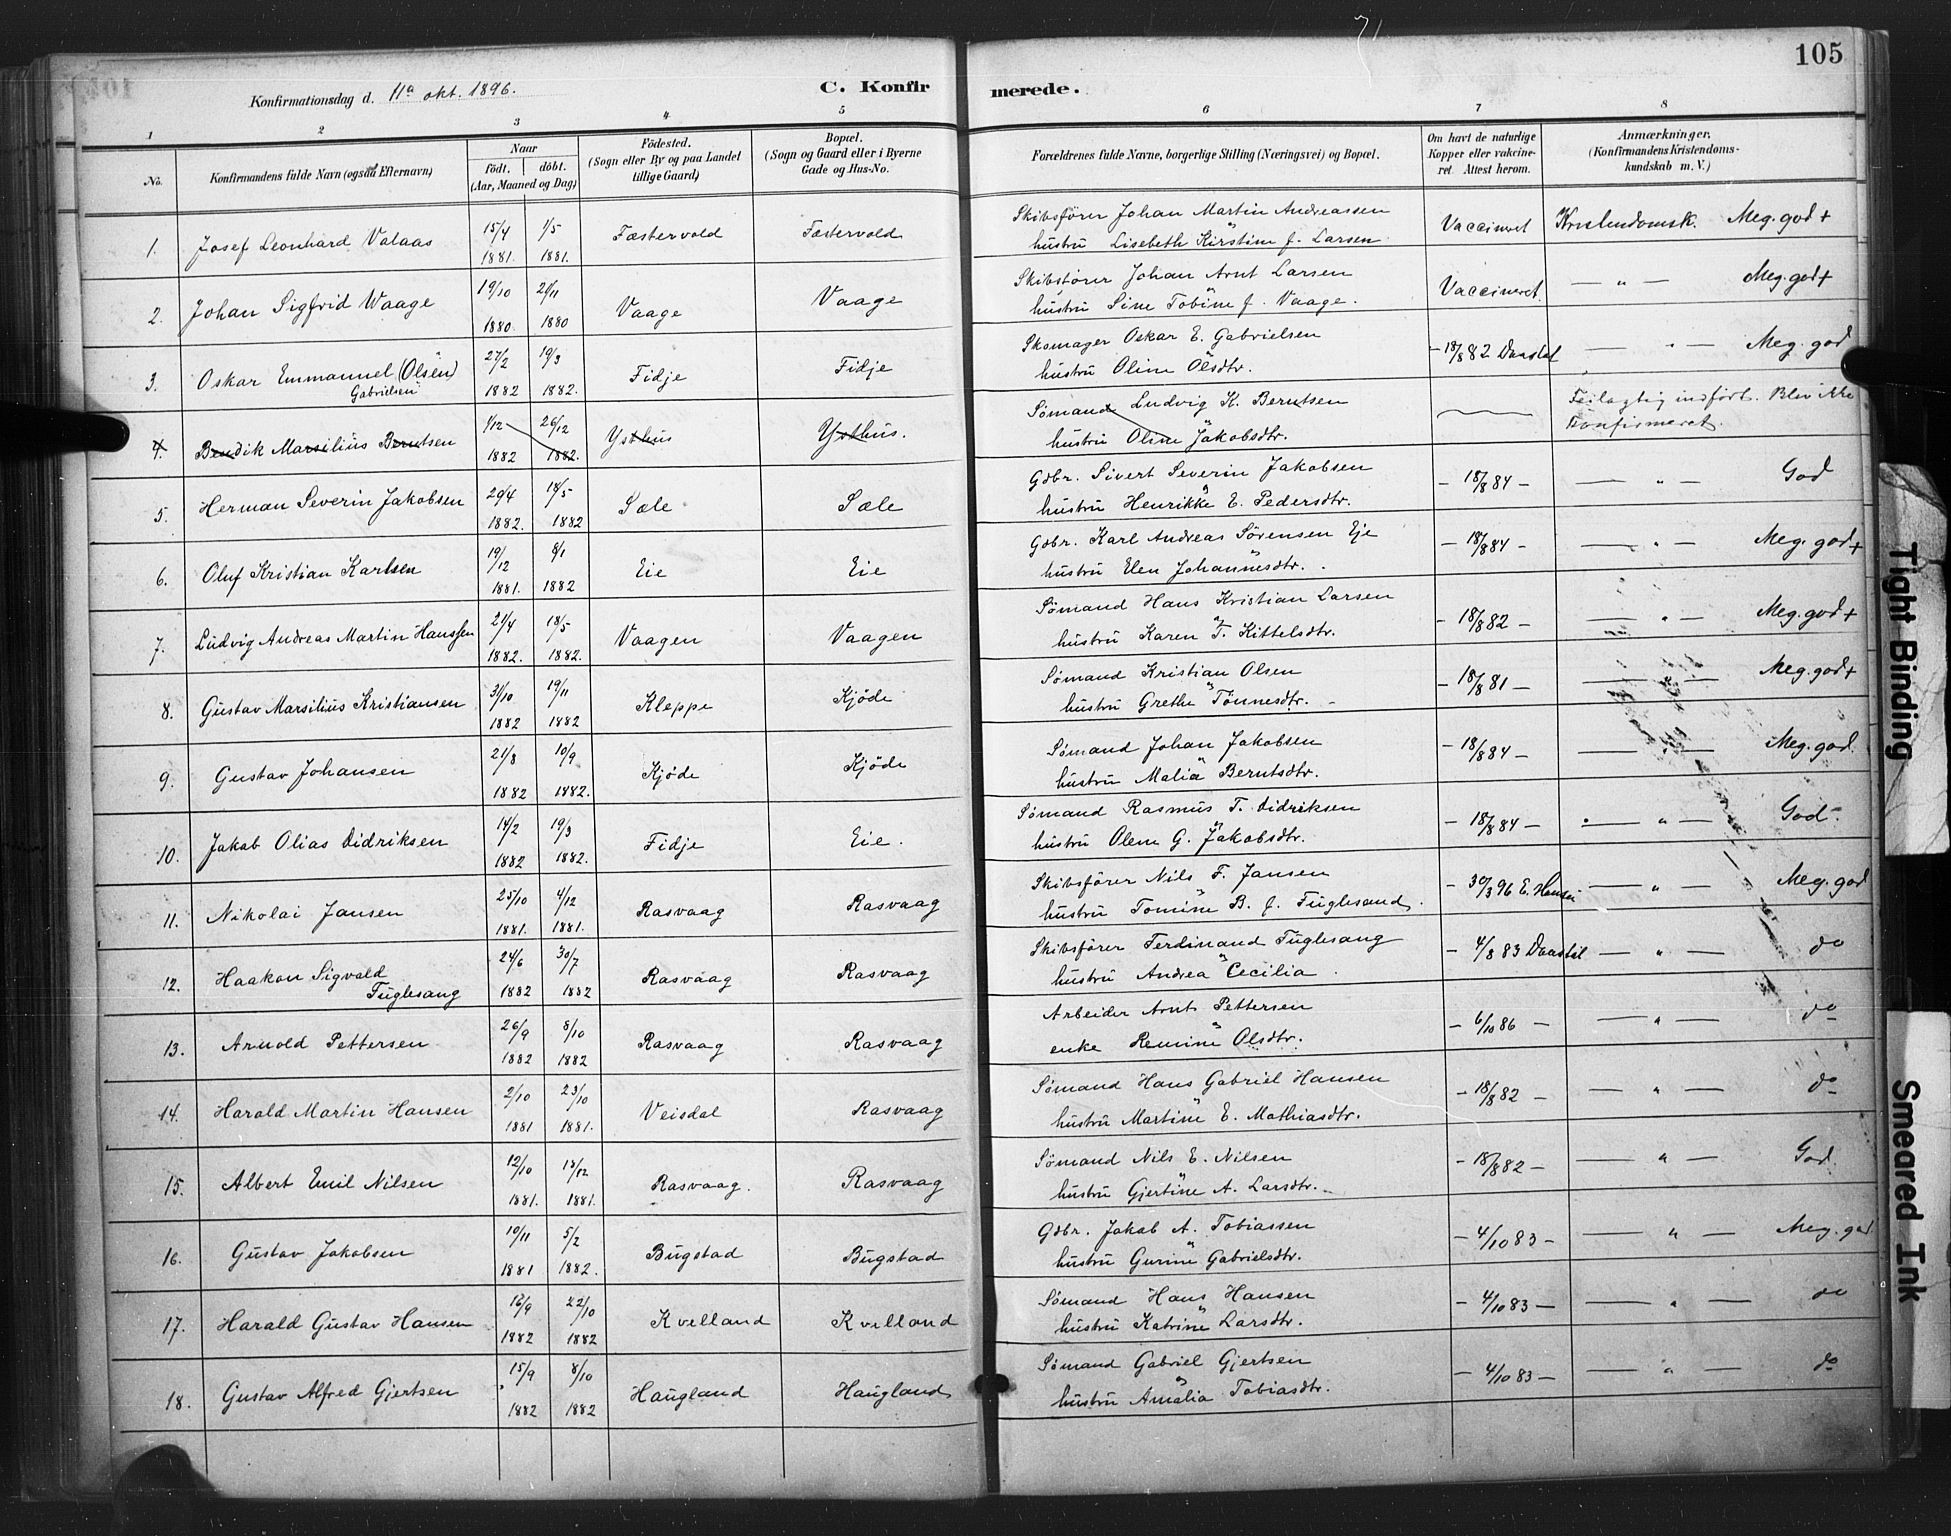 71
105
Konfirmationsdag d. 11a okt. 1896.
C. Konfirmerede.
1 2 3 4 5 6 7 8
No.
Konfirmandens fulde Navn (ogsaa Efternavn)
Naar
födt. döbt.
(Aar, Maaned og Dag)
Födested.
(Sogn eller By og paa Landet
tillige Gaard)
Bopæl.
(Sogn og Gaard eller i Byerne
Gade og Hus-No.
Forældrenes fulde Navne, borgerlige Stilling (Næringsvei) og Bopæl.
Om havt de naturlige
Kopper eller vakcine-
ret. Attest herom.
Anmærkninger.
(Konfirmandens Kristendoms-
kundskab m. V.)
1. Josef Leonhard Valaas 15/4 1881. 1/5 1881. Fæstervold Fæstervold
Skibsfører Johan Martin Andreassen
hustru Lisebeth Kirstine f. Larsen
Vaccineret Kristendomsk. Meg. god +
2. Johan Sigfrid Waage 19/10 1880. 21/11 1880 Vaage Vaage
Skibsfører Johan Arnt Larsen
hustru Sine Tobine f. Vaage.
Vaccineret — " — Meg. god +
3. Oskar Emmanuel (Olsen)
Gabrielsen
27/2 1882 19/3 1882. Fidje Fidje
Skomager Oskar E. Gabrielsen
hustru Oline Olsdtr.
- 18/8 82 Daastøl — " — Meg. god
4. Bendik Marsilius Berntsen 1/12 1882 26/12 1882. Ysthus Ysthus.
Sömand Ludvig K. Berntsen
hustru Oline Jakobsdtr.
Feilagtig indført. Blev ikke
konfirmeret.
5. Herman Severin Jakobsen 20/4 1882. 18/5 1882 Sæle Sæle
Gdbr. Sivert Severin Jakobsen
hustru Henrikke E. Pedersdtr.
- 18/8 84 - — " — God
6. Oluf Kristian Karlsen 19/12 1881. 8/1 1882 Eie Eie
Gdbr. Karl Andreas Sørensen Eje
hustru Elen Johannesdtr.
- 18/8 84 - — " — Meg. god +
7. Ludvig Andreas Martin Hanssen 21/4 1882. 18/5 1882. Vaagen Vaagen
Sömand Hans Kristian Larsen
hustru Karen T. Kittelsdtr.
- 18/8 82 - — " — Meg. god +
8. Gustav Marsilius Kristiansen 31/10 1882 19/11 1882 Kleppe Kjöde
Sömand Kristian Olsen
hustru Grethe Tönnesdtr. -
- 18/8 81 - — " — Meg. god +
9. Gustav Johansen 21/8 1882 10/9 1882. Kjöde Kjöde
Sömand Johan Jakobsen
hustru Malia Berntsdtr.
- 18/8 84 - — " — Meg. god.
10. Jakob Olias Didriksen 14/2 1882 19/3 1882. Fidje Eie.
Sömand Rasmus T. Didriksen
hustru Olene G. Jakobsdtr.
- 18/8 84 - — " — God -
11. Nikolai Jansen 25/10 1881. 4/12 1881. Rasvaag Rasvaag
Skibsfører Nils F. Jansen
hustru Tomine B. f. Fuglesand.
- 30/3 96 E. Hansen — " — Meg. god
12. Haakon Sigvald
Fuglesang
24/6 1882 30/7 1882 Rasvaag Rasvaag
Skibsfører Ferdinand Fuglesang
hustru Andrea Cecilia.
- 4/8 83 Daastøl — " — do
13. Arnold Pettersen 26/9 1882 8/10 1882 Rasvaag Rasvaag
Arbeider Arnt Pettersen
enke Remine Olsdtr.
- 6/10 86 - — " — do
14. Harald Martin Hansen 2/10 1881 23/10 1881. Veisdal Rasvaag
Sömand Hans Gabriel Hansen
hustru Martine E. Mathiasdtr.
- 18/8 82 - — " — do
15. Albert Emil Nilsen 12/10 1881. 18/12 1881. Rasvaag. Rasvaag
Sömand Nils E. Nilsen
hustru Gjertine A. Larsdtr.
- 18/8 82 - — " — God.
16. Gustav Jakobsen 10/11 1881 5/2 1882. Bugstad Bugstad
Gdbr. Jakob A. Tobiassen
hustru Gurine Gabrielsdtr.
- 4/10 83 - — " — Meg. god
17. Harald Gustav Hansen 16/9 1882 22/10 1882 Kvelland Kvelland
Sömand Hans Hansen
hustru Katrine Larsdtr.
- 4/10 83 — — " — do
18. Gustav Alfred Gjertsen 15/9 1882 8/10 1882 Haugland Haugland
Sömand Gabriel Gjertsen
hustru Amalia Tobiasdtr.
— 4/10 83 — — " — do
Tight Binding
Smeared Ink